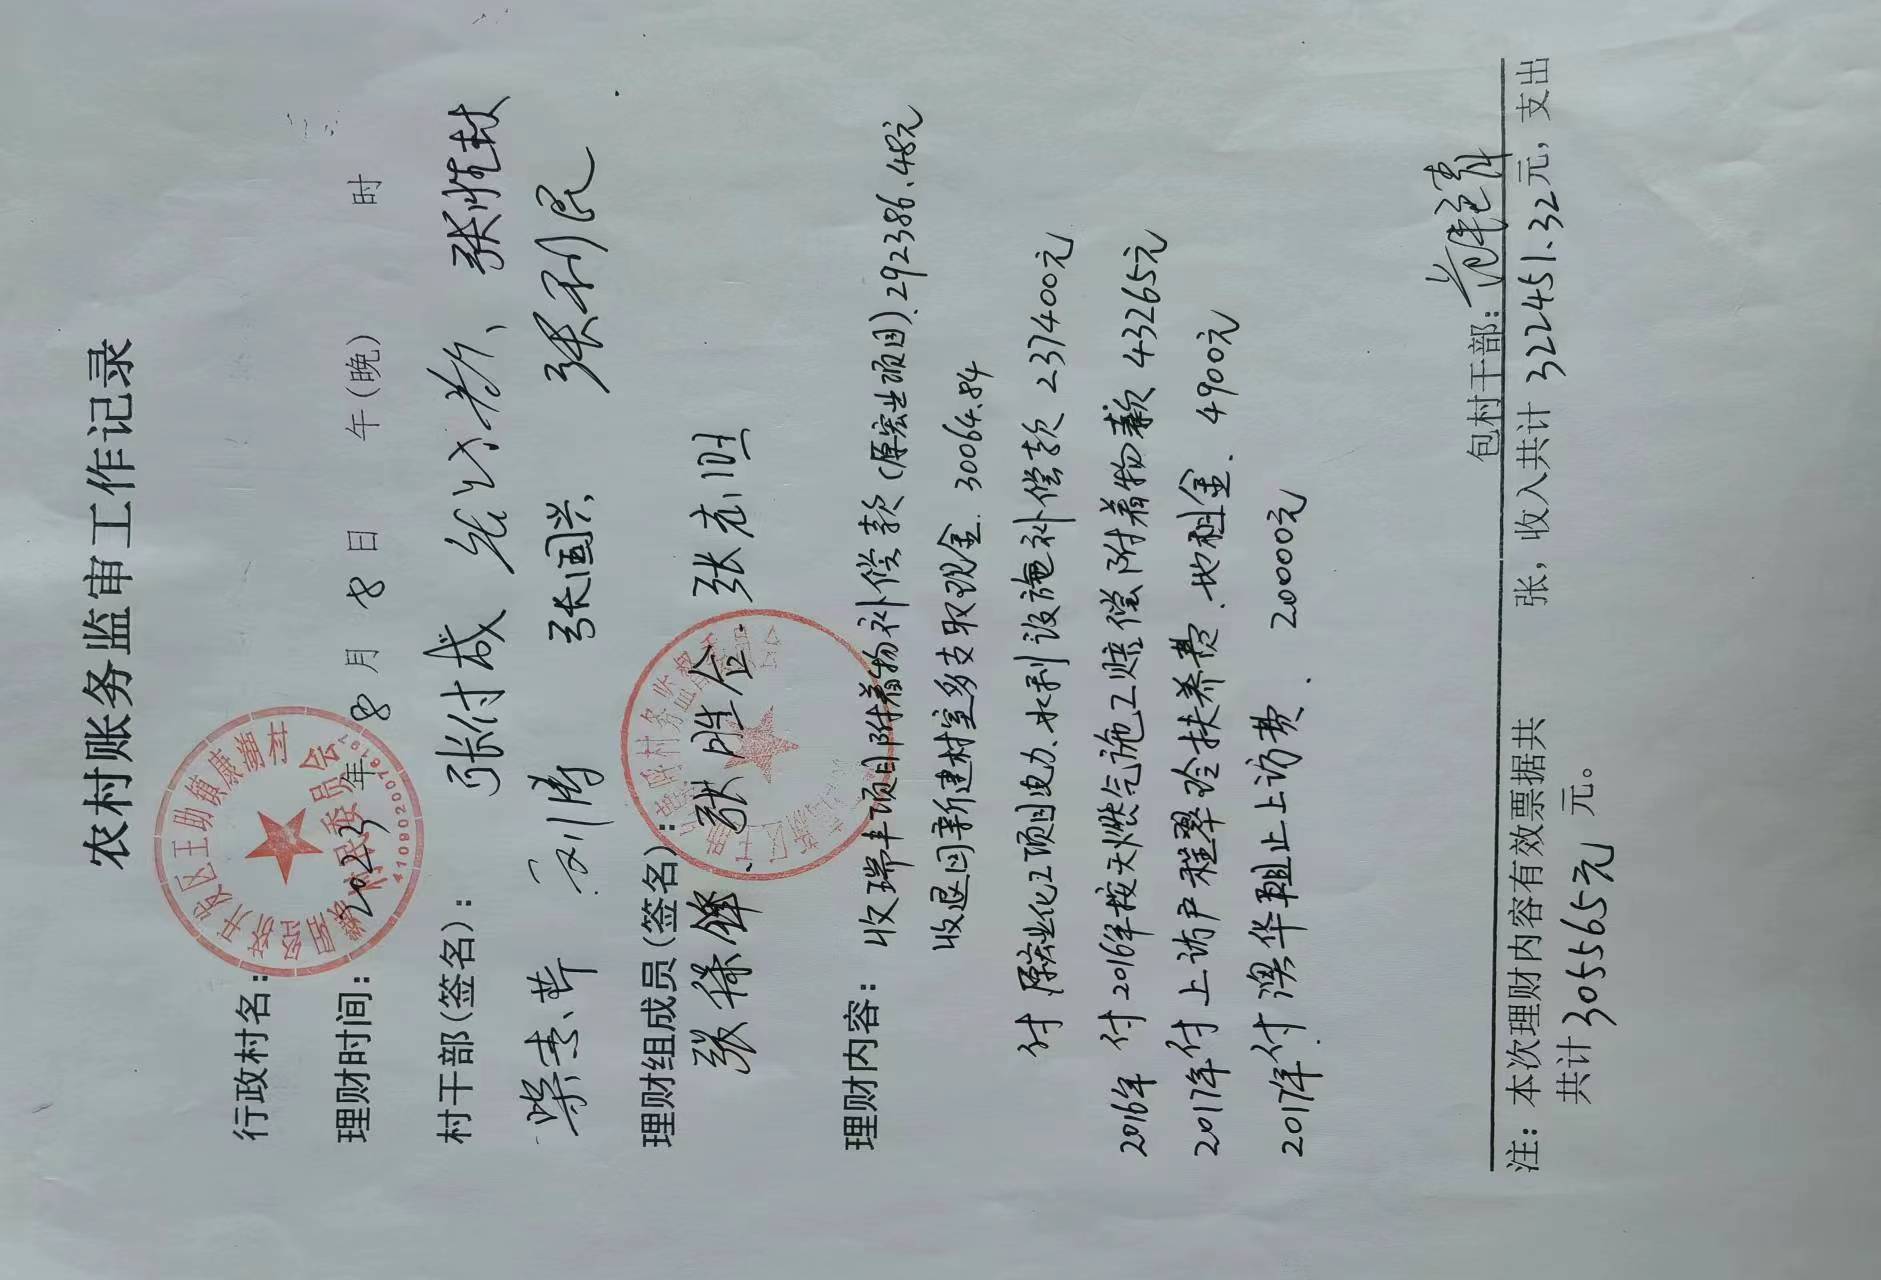 农村账务监审工作记录
行政村名:
理财时间: 2023年 8月 8日 午(晚) 时
村干部(签名): 张付成 张恒封
柴志昕、刘涛 张国兴, 张利民
理财组成员(签名):
张稳锋、张胜全. 张志旭
理财内容: 收瑞丰项目附着物补偿款(原宏业项目)、292386.48元
收退回新建村室多支取现金. 30064.84
付原宏业化工项目电力、水利设施补偿款 237400元
2016年 付2016年按天燃气施工赔偿附着物款 43265元
2017年付上访户程翠玲扶养费、地租金、4900元
2017年付澳华阻止上访费、20000元
包村干部:
注: 本次理财内容有效票据共 张, 收入共计 322451.32元, 支出
共计 305565元 元。
4109020076197